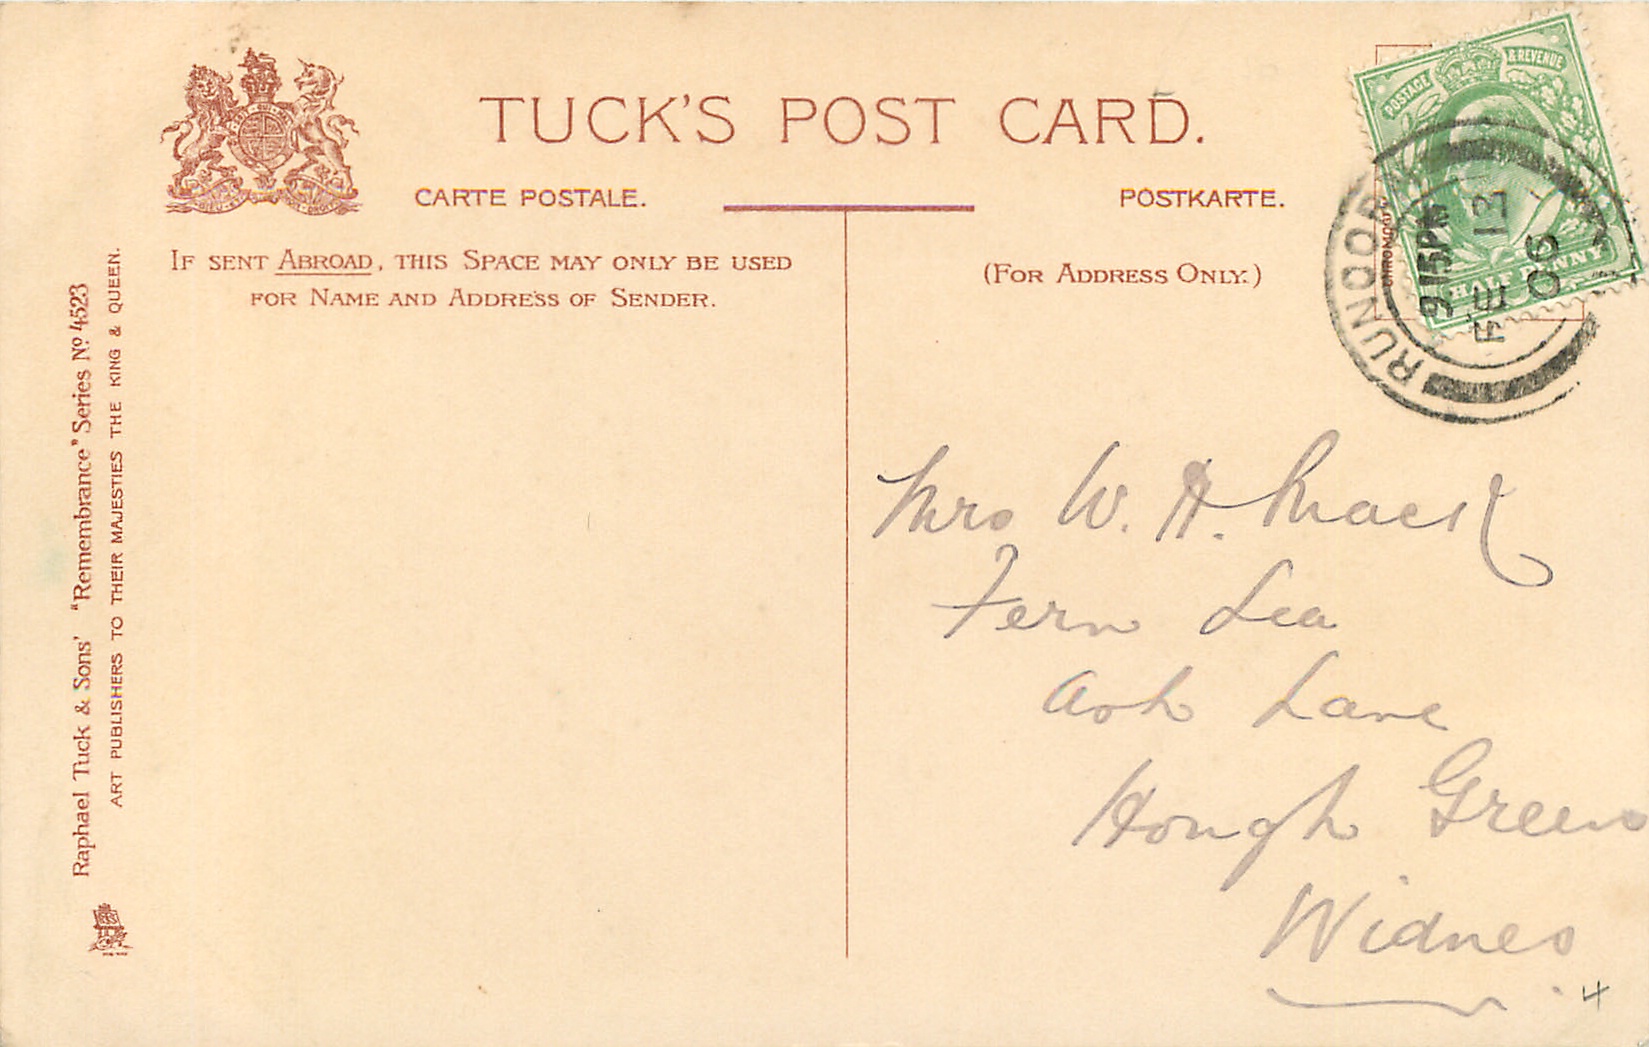 TUCK'S POST CARD.
CARTE POSTALE.
POSTKARTE.
IF SENT ABROAD, THIS SPACE MAY ONLY BE USED
FOR NAME AND ADDRESS OF SENDER.
(FOR ADDRESS ONLY.)
Raphael Tuck & Sons' "Remembrance" Series No 4523
ART PUBLISHERS TO THEIR MAJESTIES THE KING & QUEEN.
POSTAGE & REVENUE
HALF PENNY
RUNCORN
9 15PM
FE 13
06
Mrs W. H. Mack
Fern Lea
Ash Lane
Hough Green
Widnes
4